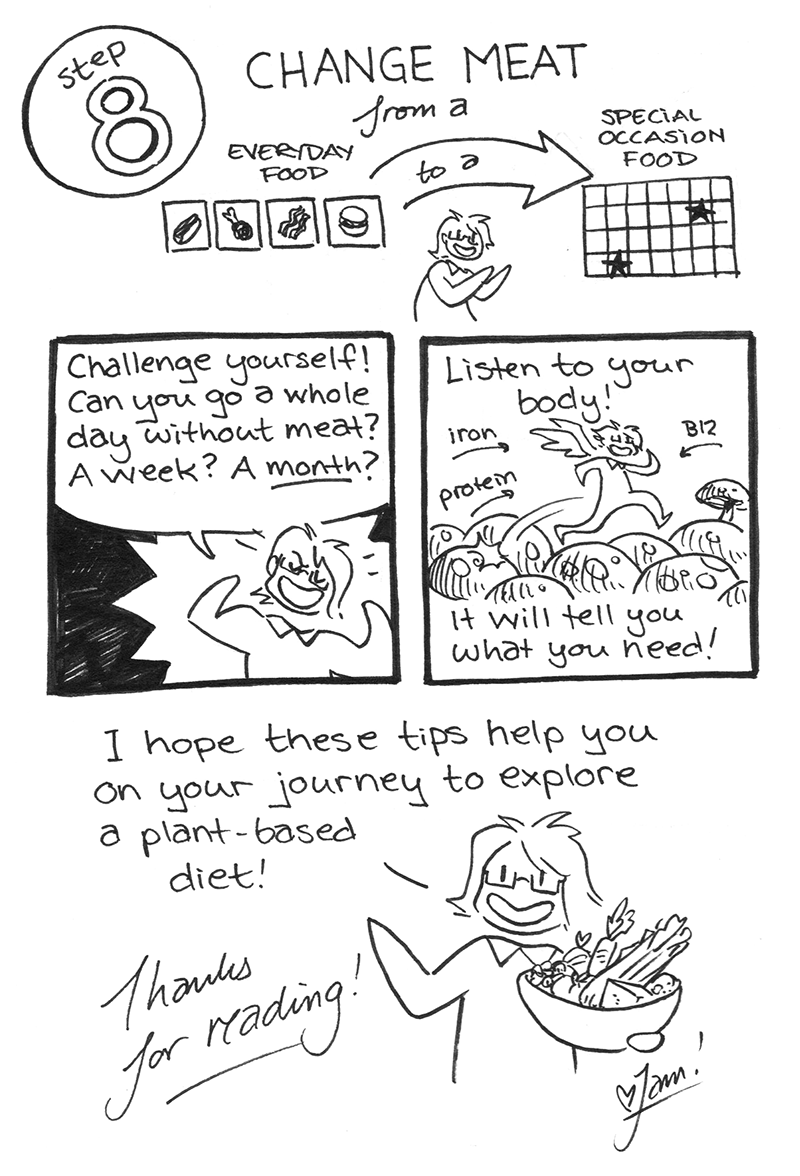 step
8
CHANGE MEAT
from a
EVERYDAY
FOOD
to a
SPECIAL
OCCASION
FOOD
Challenge yourself!
Can you go a whole
day without meat?
A week? A month?
Listen to your
body!
iron
B12
protein
It will tell you
what you need!
I hope these tips help you
on your journey to explore
a plant-based
diet!
Thanks
for reading!
Jam!